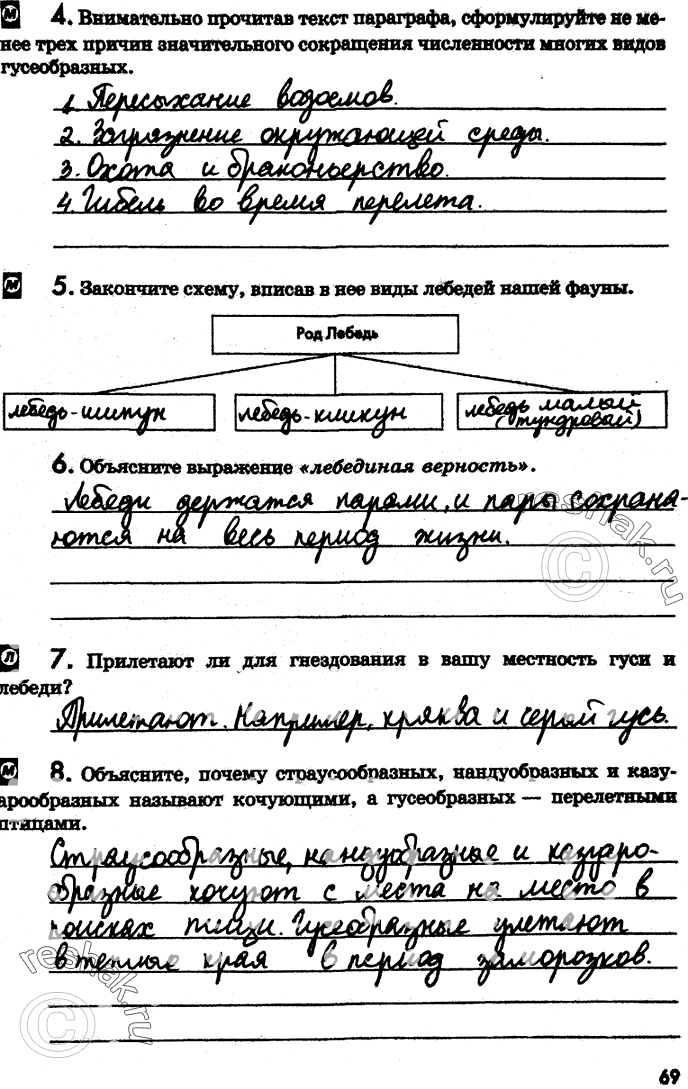 М 4. Внимательно прочитав текст параграфа, сформулируйте не ме-
нее трех причин значительного сокращения численности многих видов
гусеобразных.
1. Пересыхание водоемов.
2. Загрязнение окружающей среды.
3. Охота и браконьерство.
4. Гибель во время перелета.
М 5. Закончите схему, вписав в нее виды лебедей нашей фауны.
Род Лебедь
лебедь-шипун лебедь-кликун лебедь малый
(тундровый)
6. Объясните выражение «лебединая верность».
Лебеди держатся парами, и пары сохраня-
ются на весь период жизни.
Л 7. Прилетают ли для гнездования в вашу местность гуси и
лебеди?
Прилетают. Например, кряква и серый гусь.
М 8. Объясните, почему страусообразных, нандуобразных и казу-
арообразных называют кочующими, а гусеобразных — перелетными
птицами.
Страусообразные, нандуобразные и казуаро-
образные кочуют с места на место в
поисках пищи. Гусеобразные улетают
в теплые края в период заморозков.
reshak.ru
reshak.ru
69